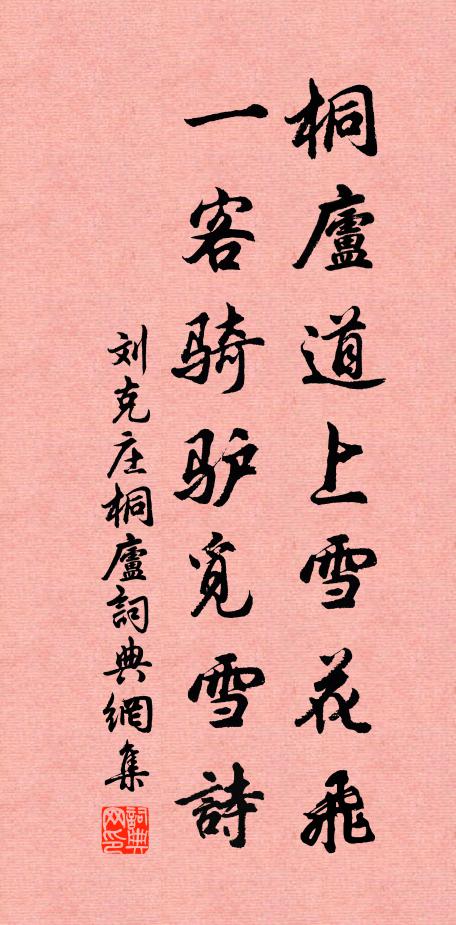 桐廬道上雪花飛
一客骑驴覓雪詩
刘克庄桐廬詞典網集
詞典网印